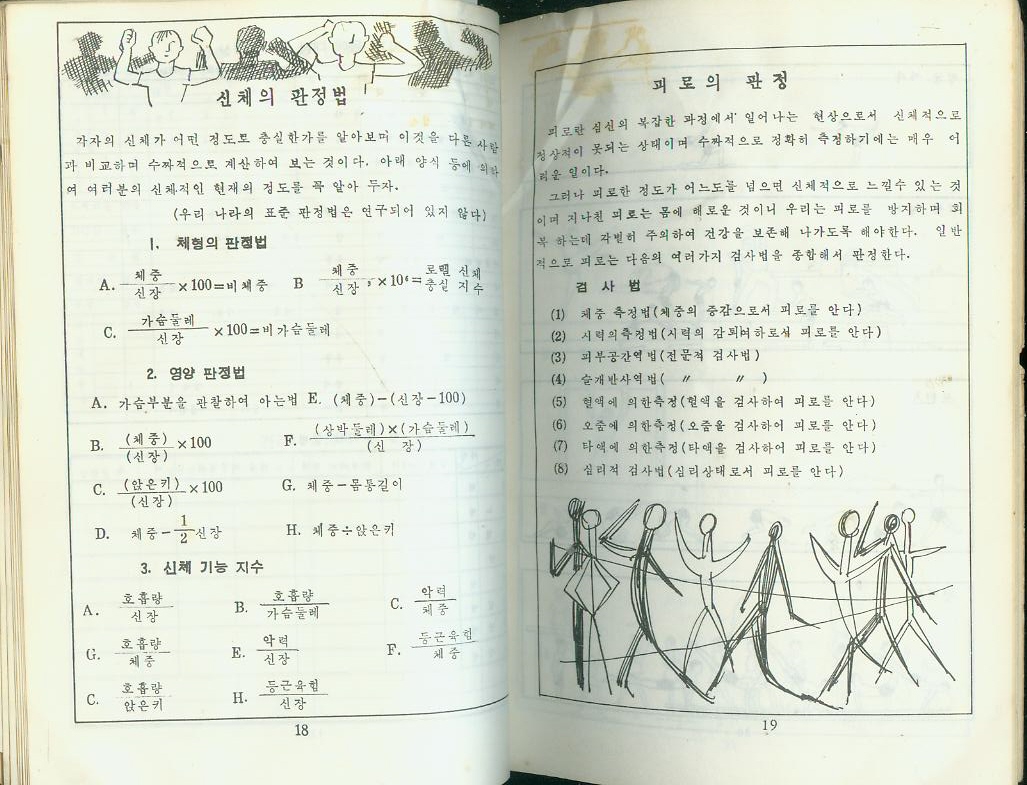 신체의 판정법
각자의 신체가 어떤 정도로 충실한가를 알아보며 이것을 다른 사람
과 비교하며 수짜적으로 계산하여 보는 것이다. 아래 양식 등에 의하
여 여러분의 신체적인 현재의 정도를 꼭 알아 두자.
(우리 나라의 표준 판정법은 연구되어 있지 않다)
1. 체형의 판정법
A. 체중/신장 ×100=비체중 B 체중/신장³ ×10⁶=로렐 신체 충실 지수
C. 가슴둘레/신장 ×100=비가슴둘레
2. 영양 판정법
A. 가슴부분을 관찰하여 아는법 E. (체중)-(신장-100)
B. (체중)/(신장) ×100 F. (상박둘레)×(가슴둘레)/(신 장)
C. (앉은키)/(신장) ×100 G. 체중-몸통길이
D. 체중-1/2신장 H. 체중÷앉은키
3. 신체 기능 지수
A. 호흡량/신장 B. 호흡량/가슴둘레 C. 악력/체중
G. 호흡량/체중 E. 악력/신장 F. 등근육힘/체중
C. 호흡량/앉은키 H. 등근육힘/신장
18
피로의 판정
피로란 심신의 복잡한 과정에서 일어나는 현상으로서 신체적으로
정상적이 못되는 상태이며 수짜적으로 정확히 측정하기에는 매우 어
려운 일이다.
그러나 피로한 정도가 어느도를 넘으면 신체적으로 느낄수 있는 것
이며 지나친 피로는 몸에 해로운 것이니 우리는 피로를 방지하며 회
복 하는데 각별히 주의하여 건강을 보존해 나가도록 해야한다. 일반
적으로 피로는 다음의 여러가지 검사법을 종합해서 판정한다.
검 사 법
(1) 체중 측정법(체중의 증감으로서 피로를 안다)
(2) 시력의측정법(시력의 감퇴여하로서 피로를 안다)
(3) 피부공간역법(전문적 검사법)
(4) 슬개반사역법( 〃 〃 )
(5) 혈액에 의한측정(혈액을 검사하여 피로를 안다)
(6) 오줌에 의한측정(오줌을 검사하여 피로를 안다)
(7) 타액에 의한측정(타액을 검사하여 피로를 안다)
(8) 심리적 검사법(심리상태로서 피로를 안다)
19